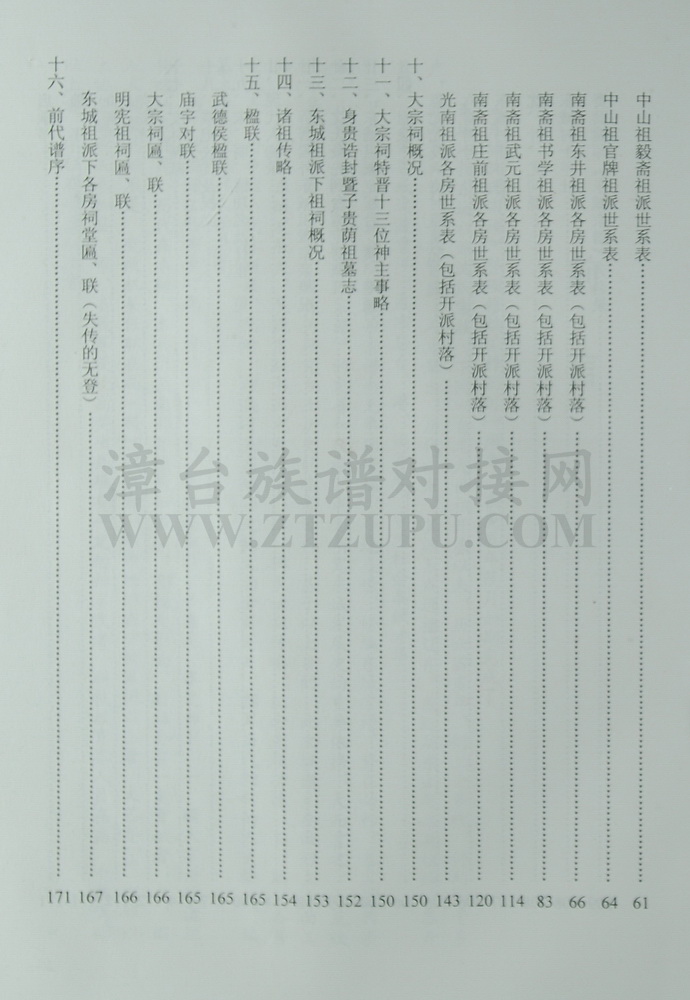 中山祖毅斋祖派世系表……61
中山祖官牌祖派世系表……64
南斋祖东井祖派各房世系表（包括开派村落）……66
南斋祖书学祖派各房世系表（包括开派村落）……83
南斋祖武元祖派各房世系表（包括开派村落）……114
南斋祖庄前祖派各房世系表（包括开派村落）……120
光南祖派各房世系表（包括开派村落）……143
十、大宗祠概况……150
十一、大宗祠特晋十三位神主事略……150
十二、身贵诰封暨子贵荫祖墓志……152
十三、东城祖派下祖祠概况……153
十四、诸祖传略……154
十五、楹联……165
武德侯楹联……165
庙宇对联……165
大宗祠匾、联……166
明宪祖祠匾、联……166
东城祖派下各房祠堂匾、联（失传的无登）……167
十六、前代谱序……171
漳台族谱对接网
WWW.ZTZUPU.COM